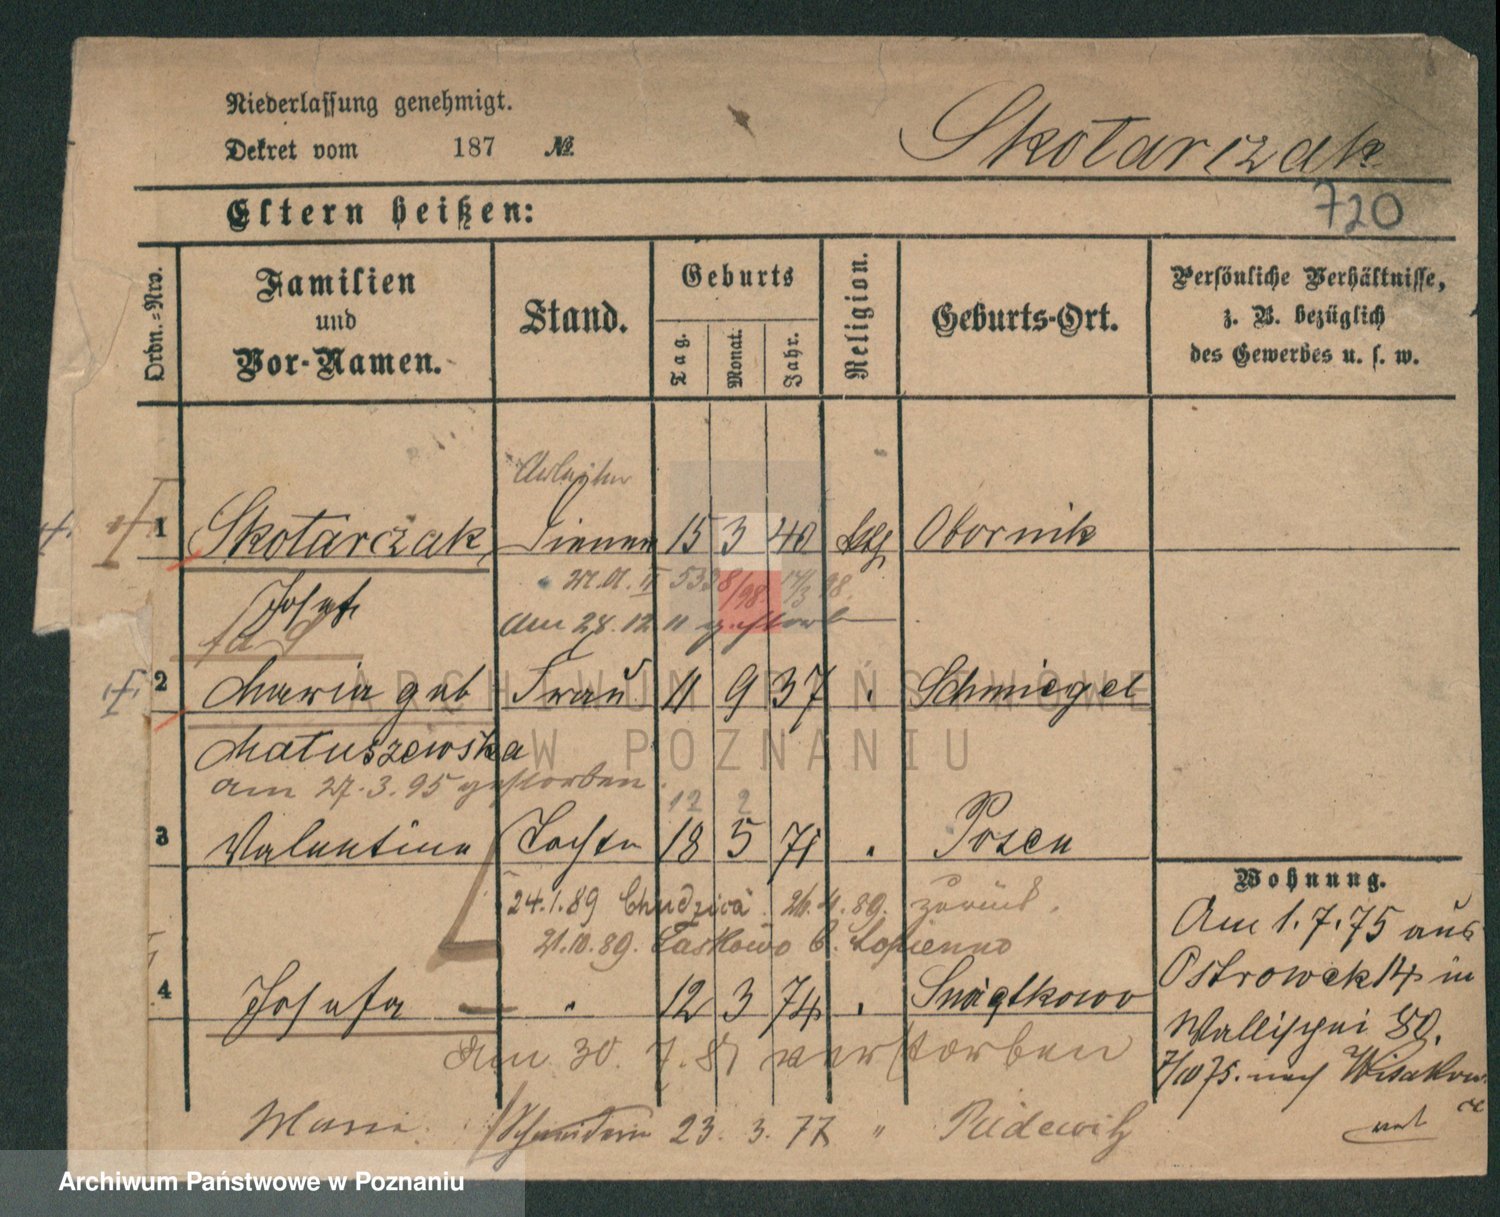 Niederlassung genehmigt.
Dekret vom 187 №
Skotarczak
720
Eltern heißen:
Ordn.-Nro.
Familien und Vor-Namen.
Stand.
Geburts
Tag. Monat. Jahr.
Religion.
Geburts-Ort.
Persönliche Verhältnisse,
z. B. bezüglich
des Gewerbes u. s. w.
Arbeiter
1 Skotarczak, Diener 15 3 40 kath Obornik
Josef
am 28.12 11 gestorb
2 Maria geb Frau 11 9 37 Schmiegel
Matuszewska
am 27.3.95 gestorben.
12 2
3 Valentine Tochter 18 5 71 " Posen
24.1.89 Chudzica. 24.4.89. zurück.
21.10.89. Laskowo b. Lopienno
4 Josefa " 12 3 74 "
am 30. 7. 81 verstorben
Marie. Schneiderin 23. 3. 77 " Pudewitz
Wohnung.
Am 1.7.75 aus
Ostrowek 14 in
Wallischei 89.
7/10 75. nach
ARCHIWUM PAŃSTWOWE
W POZNANIU
Archiwum Państwowe w Poznaniu